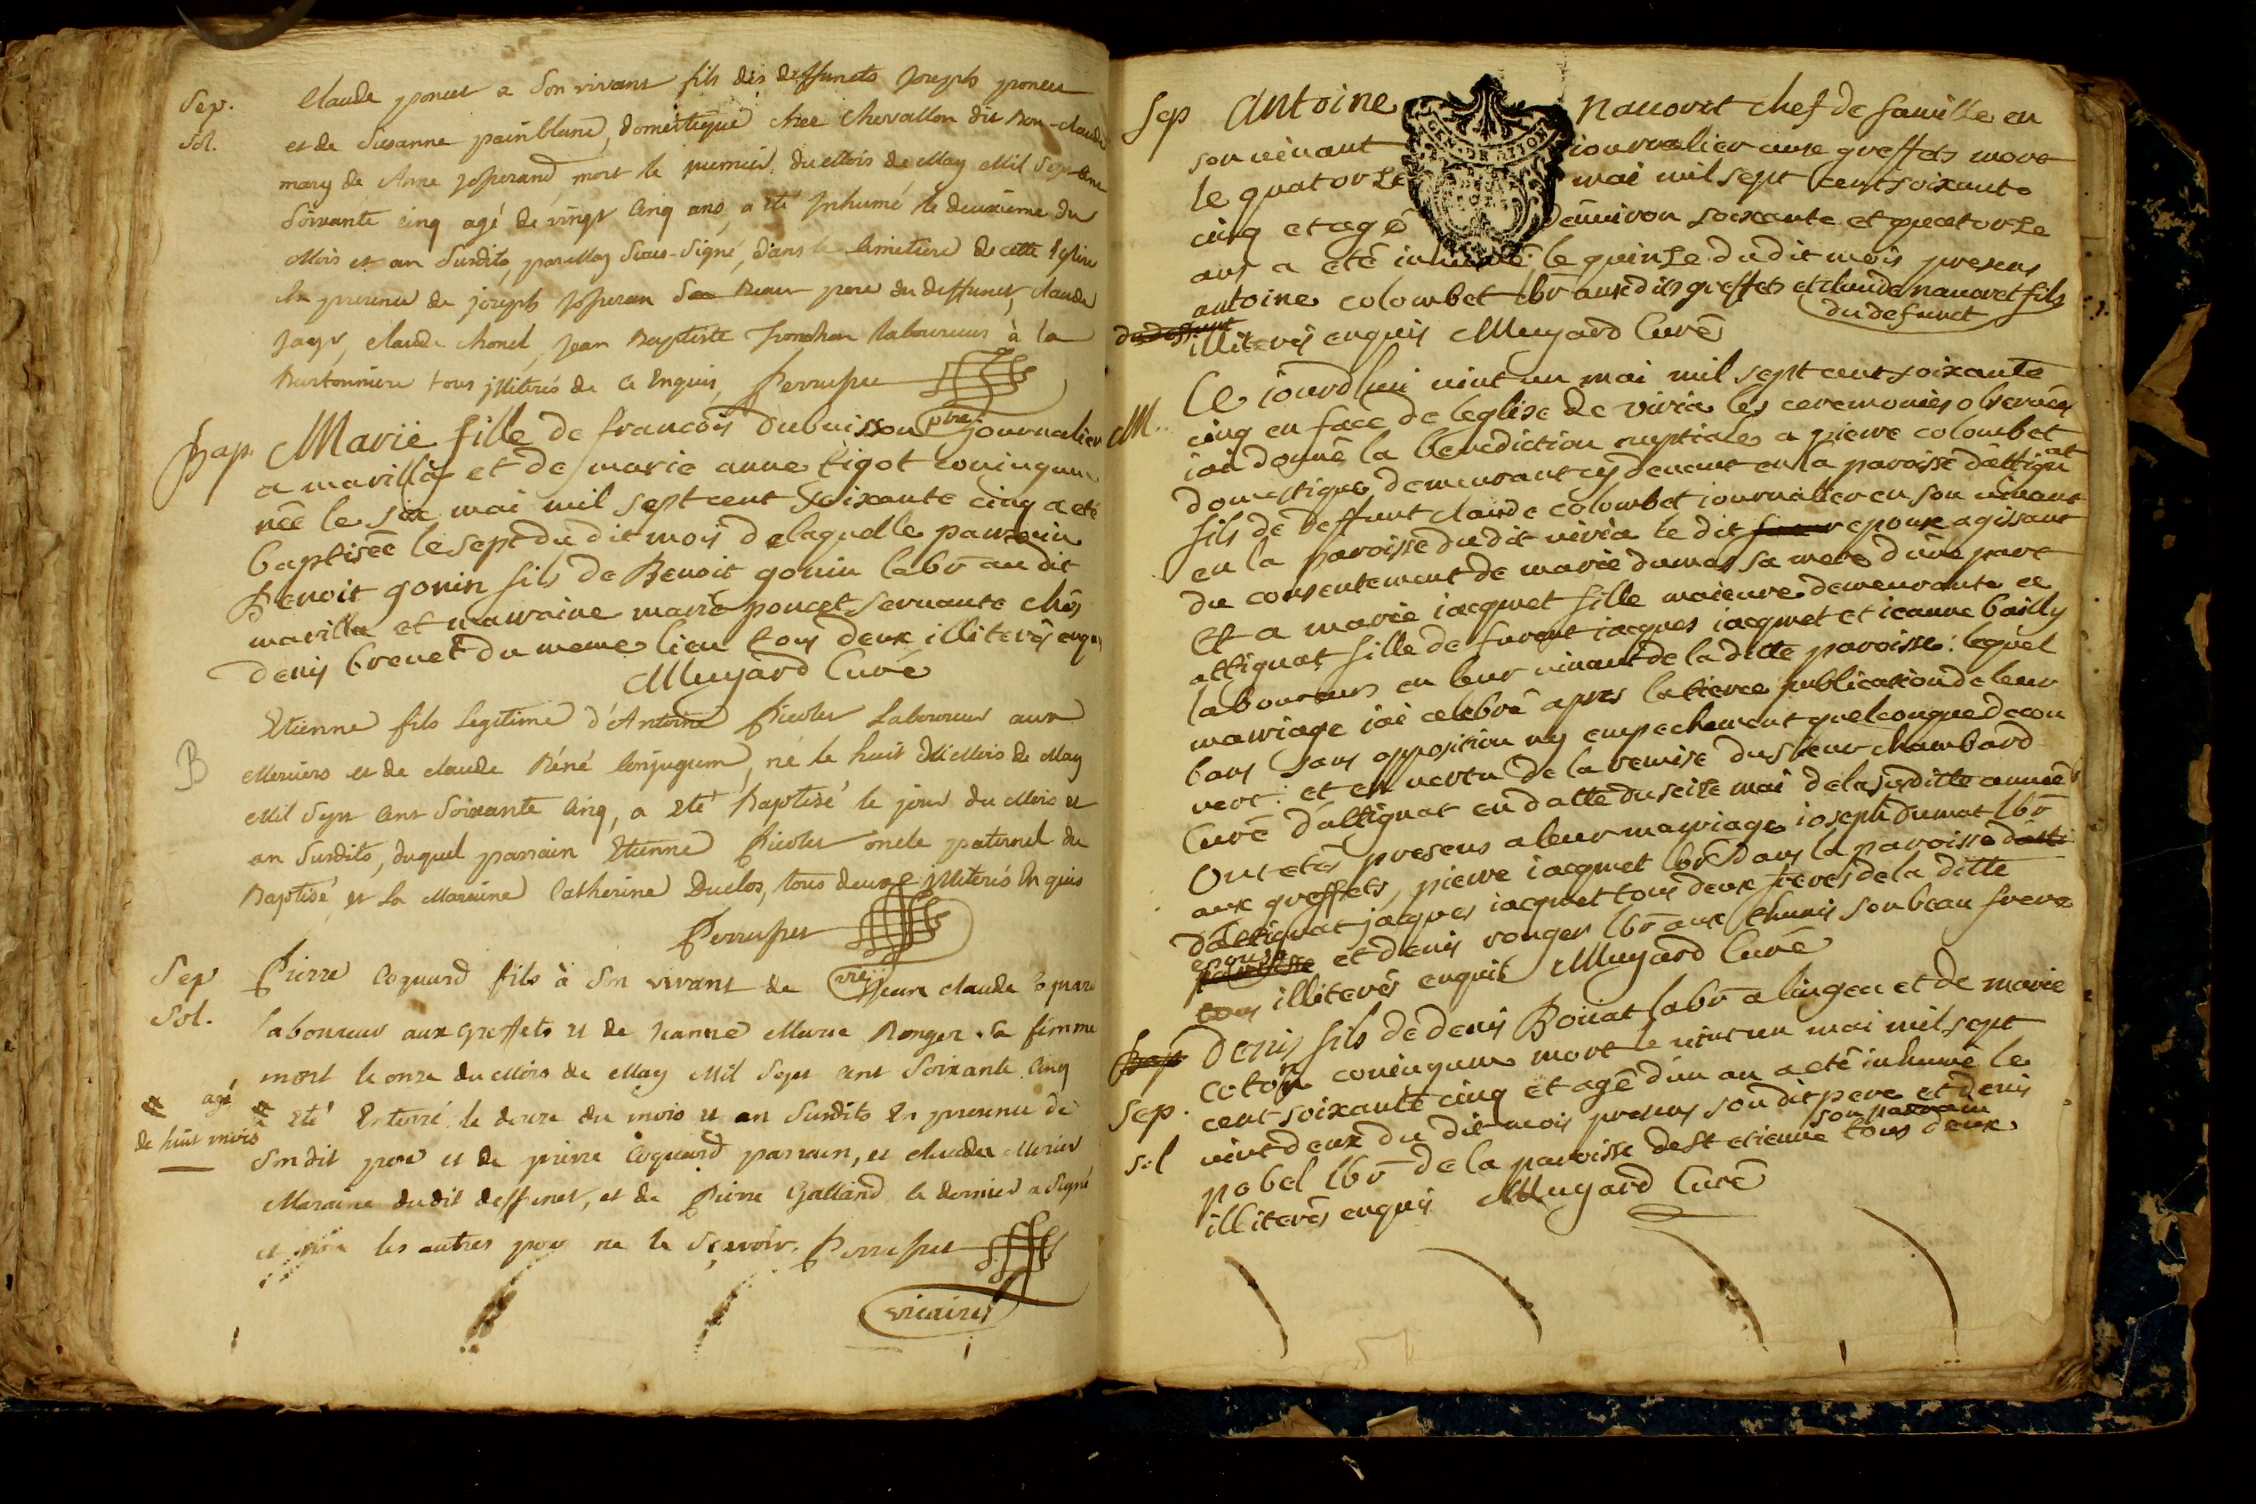 Sep. Claude poncet a Son vivant fils des deffuncts Joseph poncet
Sol. et de Susanne painblanc, domestique chez Chevallon dit Bon-claude
mary de Anne Josserand mort le premier du Mois de May Mil Sept Cent
Soixante cinq agé de vingt Cinq ans, a été Inhumé le deuxieme du
Mois et an Susdits, par Moy Sous-Signé, dans le Cimetiere de cette Eglise
En presence de joseph Josseran Beau pere du deffunct, claude
Jayr, claude chonel, Jean Baptiste Laboureurs à la
Burtonniere tous jlliterés de Ce Enquis,
pbre
Bap. Marie fille de francois Dubuisson journalier
a marillia et de marie anne tigot coniugum
née le six mai mil sept cent soixante cinq a eté
baptisée le sept du dit mois de laquelle parrein
Benoit gonin fils de Benoit gonin labr au dit
marillia et marraine marie poncet servante chés
denis brevet du meme lieu tous deux illiterés enquis
Muyard Curé
B Etienne fils Legitime d'Antoine Picolet Laboureur aux
Merciers et de claude Réné Conjugum, né le huit du Mois de May
Mil Sept Cent Soixante Cinq, a Eté Baptisé le jour du Mois et
an Susdits, duquel parrain Etienne Picolet oncle paternel du
Baptisé, et La Maraine Catherine Duclos, tous deux jlliterés Enquis
vre
Sep Pierre Coquard fils à Son vivant de Jean claude Coquard
Sol. Laboureur aux greffets et de Jeanne Marie Ronger Sa femme
mort le onze du Mois de May Mil Sept Cent Soixante Cinq
agé de huit mois
a Eté Enterré le douze du mois et an Susdits En presence de
Son dit pere et de pierre Coquard parrain, et claudes Merier
Maraine dudit deffunct, et de Pierre Galland le dernier a Signé
et non les autres pour ne le Sçavoir.
vicaire
Sep Antoine nauoret chef de famille en
son vivant journalier aux greffets mort
le quatorze mai mil sept cent soixante
cinq et agé d'environ soixante et quatorze
ans a eté inhumé le quinze du dit mois presens
antoine colombet lbr aux dits greffets et claude nauoret fils
du defunct
illiterés enquis Muyard Curé
M. Ce jourd'hui vint un mai mil sept cent soixante
cinq en face de leglise de viria les ceremonies observées
iai donné la benediction nuptiale a pierre colombet
domestique demeurant cy devant en la paroisse d'attignat
fils de deffunt claude colombet journalier en son vivant
en la paroisse du dit viria le dit epoux agissant
du consentement de marie dumas sa mere d'une part
Et a marie iacquet fille maieure demeurante a
attignat fille de furent iacques iacquet et ieanne bailly
laboureurs en leur vivant de la ditte paroisse: lequel
mariage iai celebré apres la tierce publication de leur
bans sans opposition ny empechement quelconque decou
vert: et en vertu de la remise du sieur chambard
Curé d'attignat en datte du seize mai de la susditte année
Ont etés presens a leur mariage ioseph dumat lbr
aux greffets, pierre iacquet lbr dans la paroisse
d'attignat jacques iacquet tous deux freres de la ditte
epouse et denis ronger lbr aux thunis son beau frere
tous illiterés enquis Muyard Curé
Bap Denis fils de denis Boüiat labr a lingea et de marie
Sep. coton coniugum mort le vint un mai mil sept
cent soixante cinq et agé d'un an a eté inhumé le
Sol vint deux du dit mois presens son dit pere et denis
son parrain
pobel lbr de la paroisse de St etienne tous deux
illiterés enquis Muyard Curé